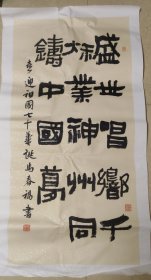 盛世唱響千
秋業神州同
鑄中國夢
喜迎祖國七十華誕馬春福書